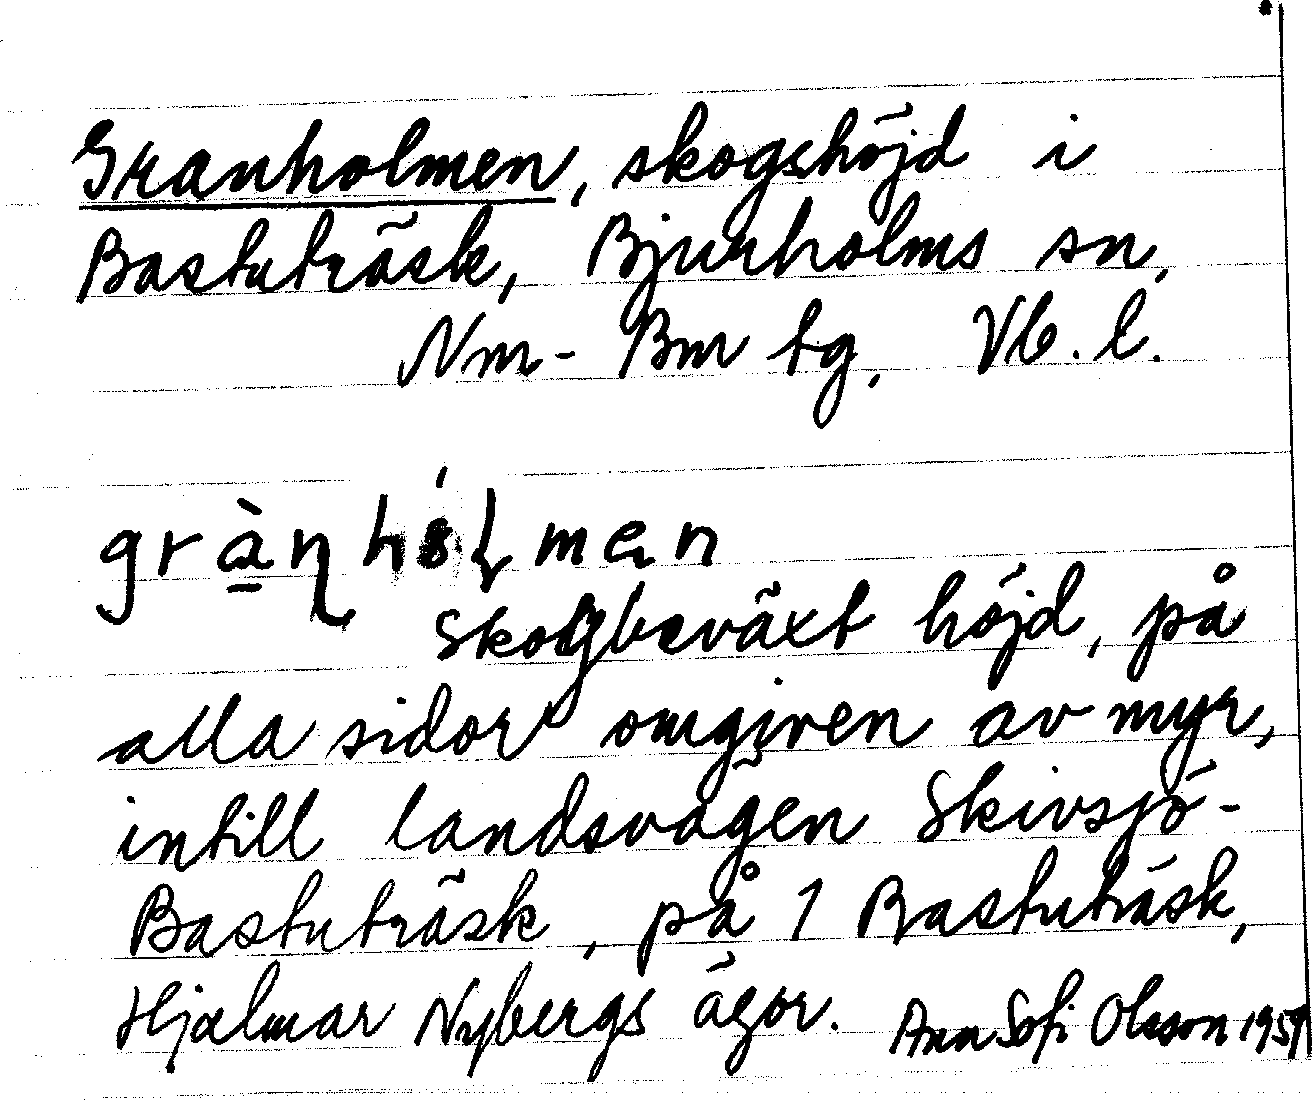 Granholmen, skogshöjd i
Bastuträsk, Bjurholms sn,
Nm- Bm tg, Vb. l.
Skogbeväxt höjd, på
alla sidor omgiven av myr,
intill landsvägen Skivsjö-
Bastuträsk, på 1 Bastuträsk,
Hjalmar Nybergs ägor. Ann Sofi Olsson 1959